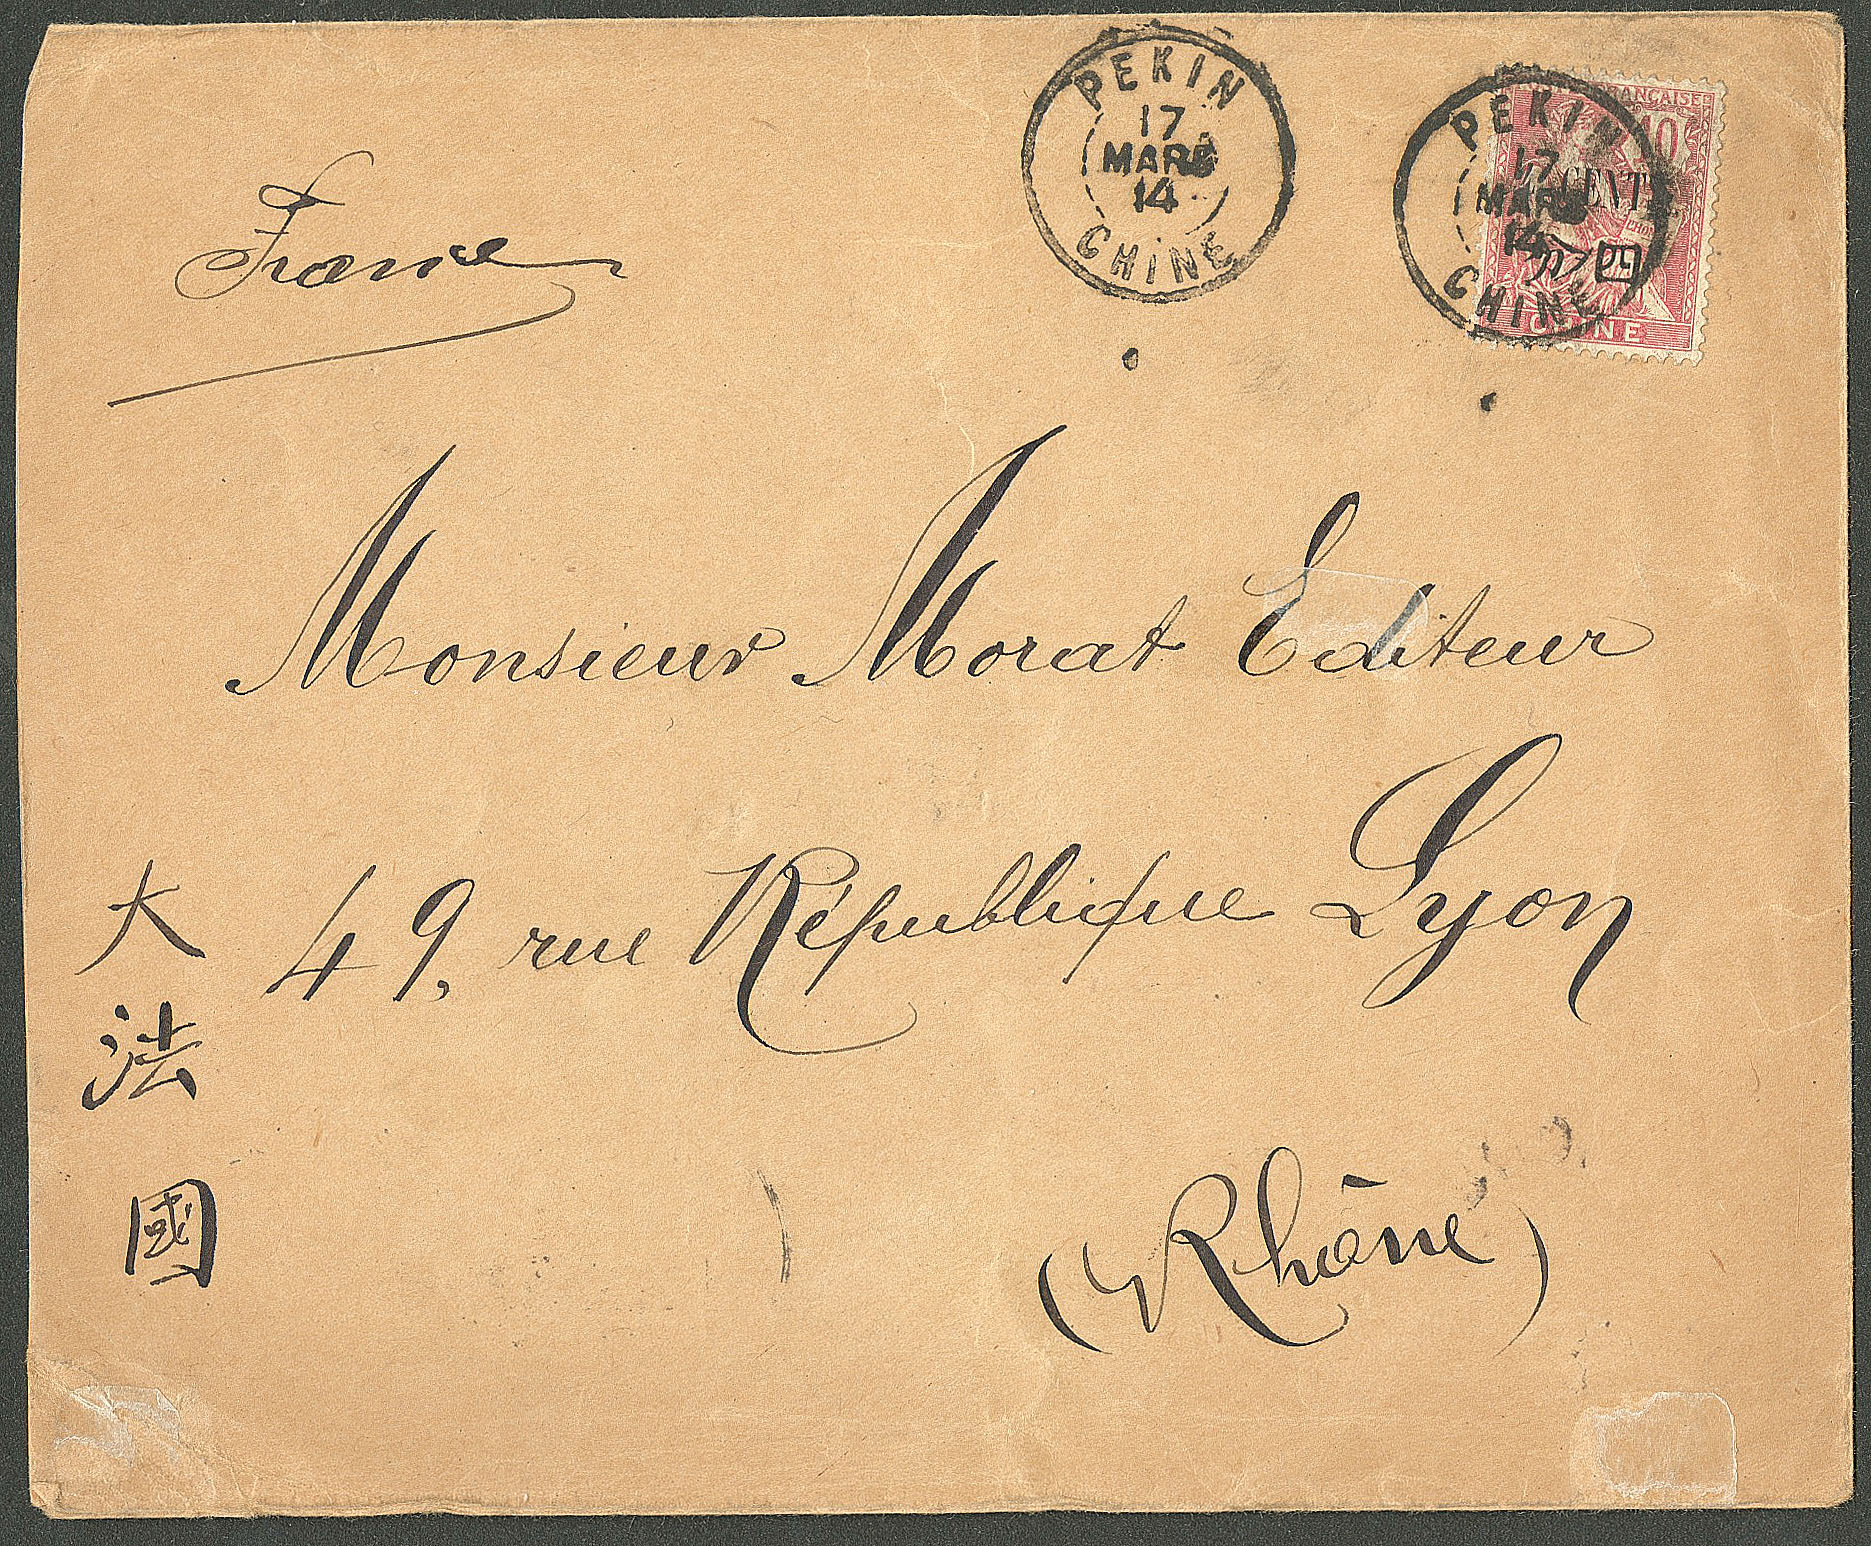 PEKIN
17
MARS
14
CHINE
PEKIN
17
MARS
14
CHINE
FRANÇAISE
10
CENT
分四
CHINE
France
Monsieur Morat Editeur
49, rue République Lyon
(Rhône)
大法國